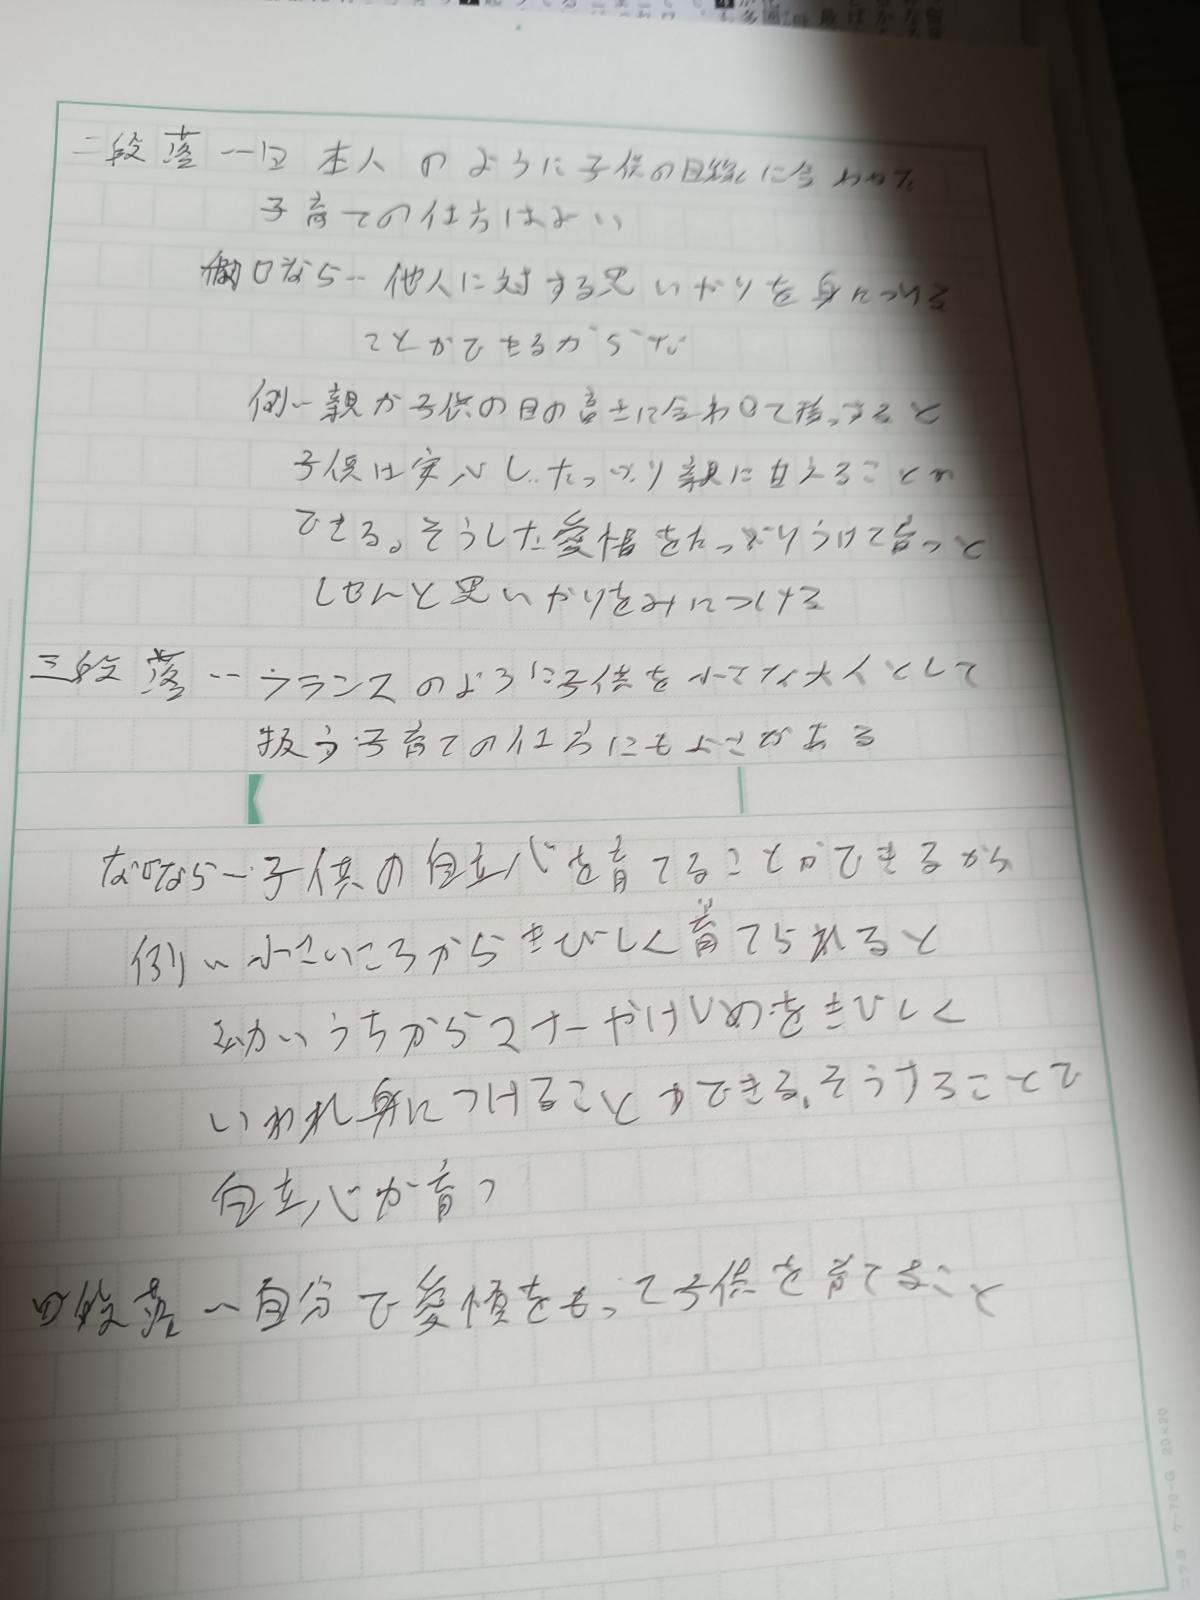 二段落…日本人のように子供の目線に合わせた
子育ての仕方はよい
なぜなら…他人に対する思いやりを身につける
ことができるからだ
例…親が子供の目の高さに合わせて接すると
子供は安心したっぷり親に甘えることが
できる。そうした愛情をたっぷりうけて育つと
しぜんと思いやりをみにつける
三段落…フランスのように子供を小さな大人として
扱う子育ての仕方にもよさがある
なぜなら…子供の自立心を育てることができるから
例…小さいころからきびしく育てられると
幼いうちからマナーやけじめをきびしく
いわれ身につけることができる。そうすることで
自立心が育つ
四段落…自分で愛情をもって子供を育てること
コクヨ ケ-70-G 20×20